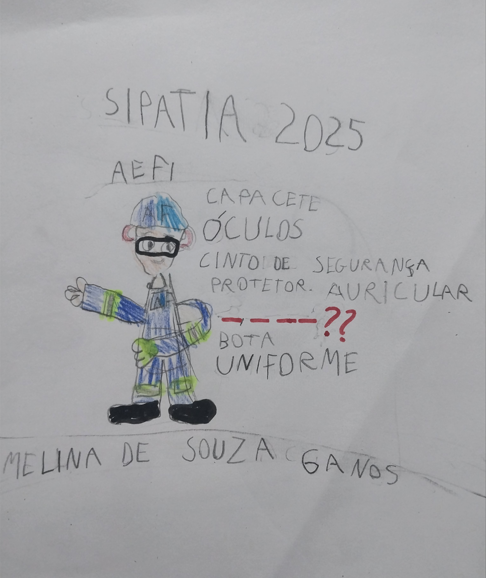 SIPATIA 2025
AEFI
CAPACETE
ÓCULOS
CINTO DE SEGURANÇA
PROTETOR. AURICULAR
----??
BOTA
UNIFORME
MELINA DE SOUZA GANOS